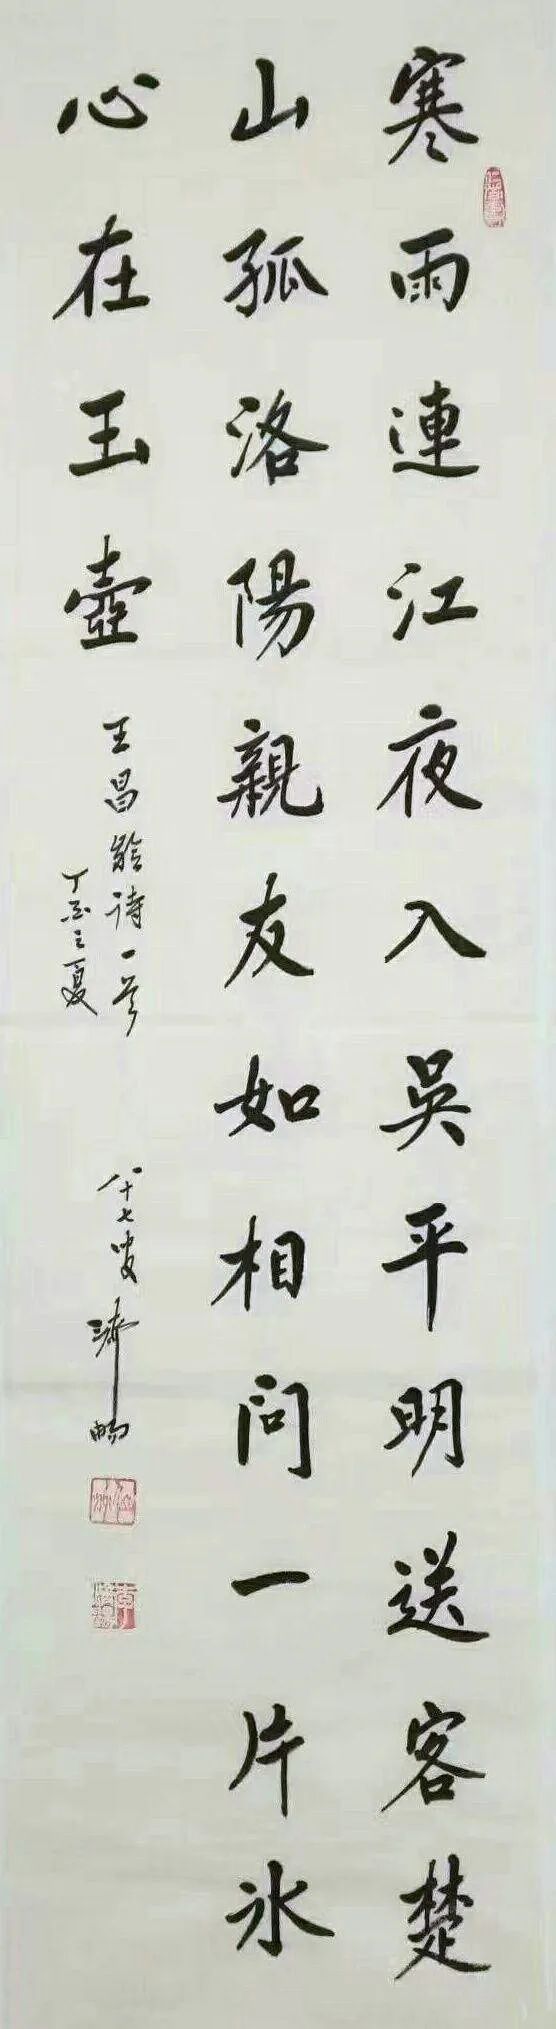 寒雨連江夜入吳平明送客楚
山孤洛陽親友如相問一片冰
心在玉壺
王昌齡诗一首
丁酉之夏
八十七叟濟畅